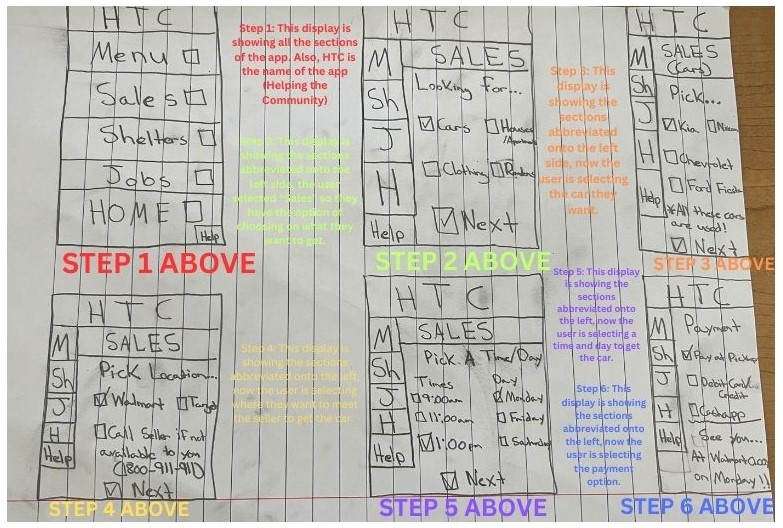 HTC
Menu
Sales
Shelters
Jobs
HOME
Help
STEP 1 ABOVE
Step 1: This display is
showing all the sections
of the app. Also, HTC is
the name of the app
(Helping the
Community)
Step 2: This display is
showing the sections
abbreviated onto the
left side, the user
selected "Sales" so they
have the option of
choosing on what they
want to get.
HTC
M
Sh
J
H
Help
SALES
Looking for...
Cars
Houses
Clothing
Next
STEP 2 ABOVE
Step 3: This
display is
showing the
sections
abbreviated
onto the left
side, now the
user is selecting
the car they
want.
HTC
M
Sh
J
H
Help
SALES
(Cars)
Pick...
Kia
Nissan
Chevrolet
Ford Fiesta
*All these cars
are used!
Next
STEP 3 ABOVE
HTC
M
Sh
J
H
Help
SALES
Pick Location...
Walmart
Target
Call Seller if not
available to you
Next
STEP 4 ABOVE
Step 4: This display is
showing the sections
abbreviated onto the left,
now the user is selecting
where they want to meet
the seller to get the car.
HTC
M
Sh
J
H
Help
SALES
Pick A Time/Day
Times
Day
9:00am
Monday
11:00am
Friday
1:00pm
Saturday
Next
STEP 5 ABOVE
Step 5: This display
is showing the
sections
abbreviated onto
the left, now the
user is selecting a
time and day to get
the car.
Step 6: This
display is showing
the sections
abbreviated onto
the left, now the
user is selecting
the payment
option.
HTC
M
Sh
J
H
Help
Payment
Pay at Pickup
Debit Card/
Credit
Cashapp
See you...
At Walmart
on Monday!!
STEP 6 ABOVE